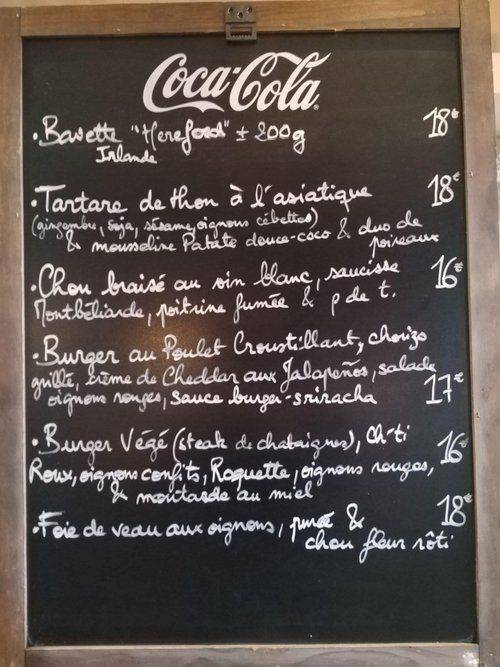 Coca-Cola
• Bavette "Hereford" ± 200g 18€
Irlande
• Tartare de thon à l'asiatique 18€
(gingembre, soja, sésame, oignons cébettes)
& mousseline Patate douce-coco & duo de
poireaux
• Chou braisé au vin blanc, saucisse 16€
Montbéliarde, poitrine fumée & p de t.
• Burger au Poulet Croustillant, chorizo
grillé, crème de Cheddar aux Jalapeños, salade
oignons rouges, sauce burger-sriracha 17€
• Burger Végé (steak de chataignes), Ch'ti 16€
Roux, oignons confits, Roquette, oignons rouges,
& moutarde au miel
• Foie de veau aux oignons, purée & 18€
chou fleur rôti